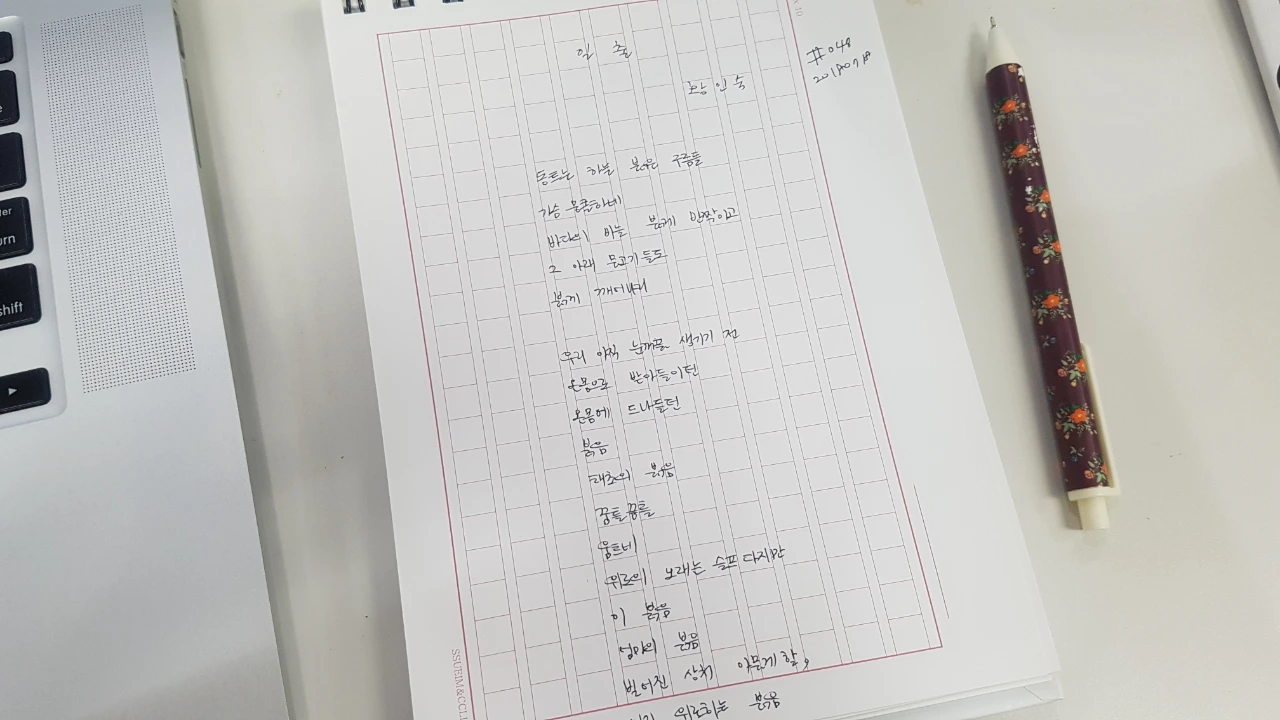 일출
황인숙
#048
동트는 하늘 붉은 구름들
가슴 뭉클하네
바다의 비늘 붉게 반짝이고
그 아래 물고기들도
붉게 깨어나리
우리 아직 눈꺼풀 생기기 전
온몸으로 받아들이던
온몸에 드나들던
붉음
태초의 붉음
꿈틀꿈틀
움트네
위로의 노래는 슬프다지만
이 붉음
붉음
벌어진 상처 아물게 할,
위로하는 붉음
SSUEIM&CCLI
x 10
shift